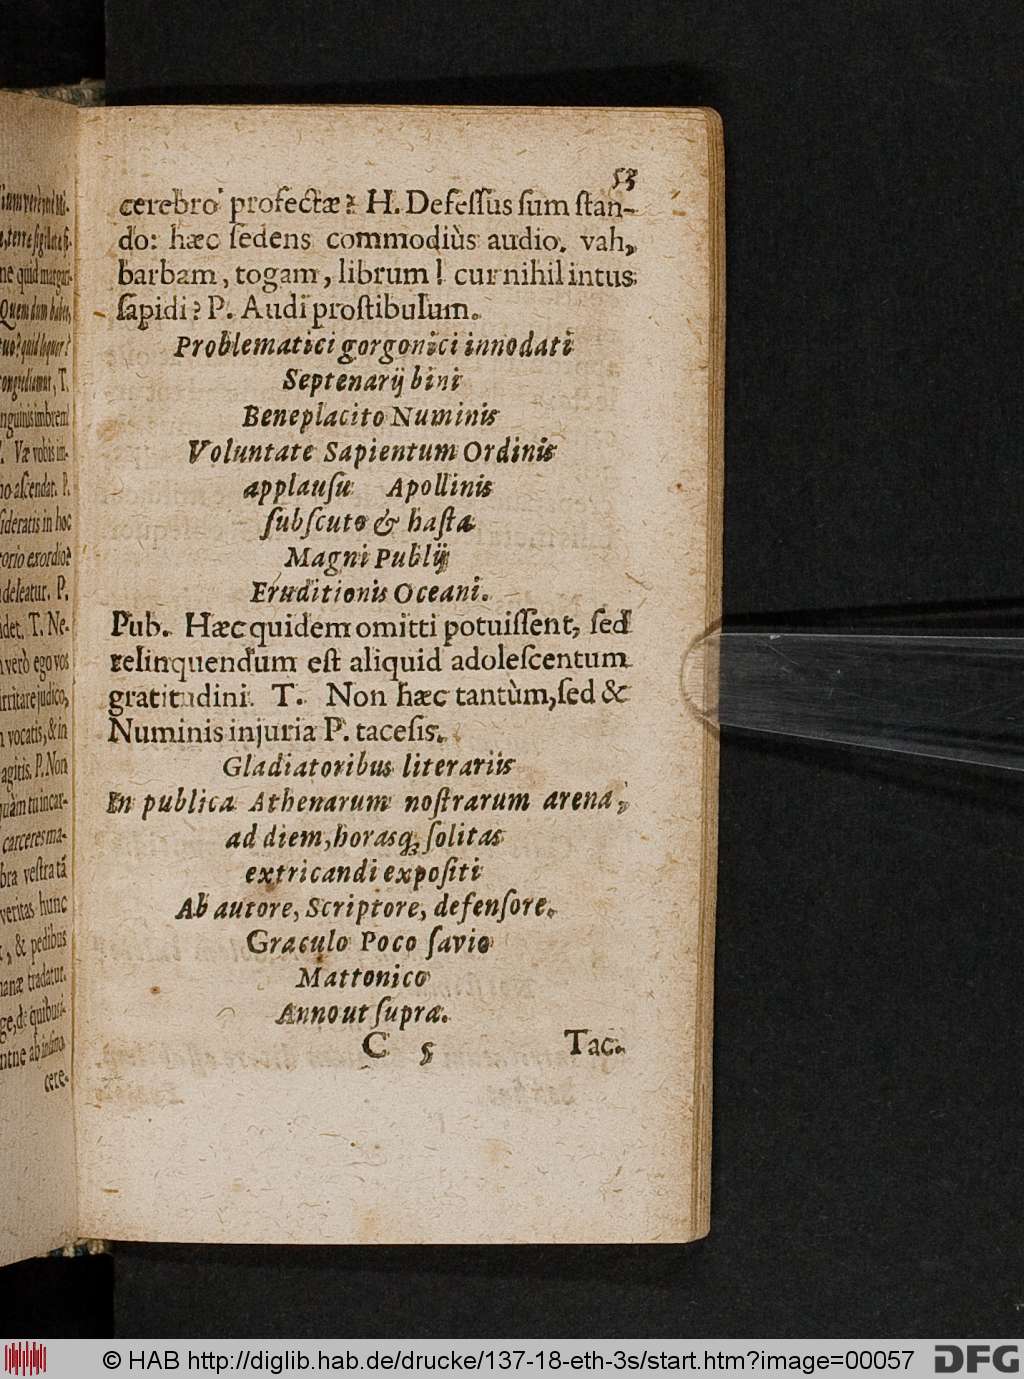 53
cerebro profectæ? H. Defessus sum stan-
do: hæc sedens commodiùs audio. vah,
barbam, togam, librum! cur nihil intus
sapidi? P. Audi prostibulum.
Problematici gorgonici innodati
Septenarij bini
Beneplacito Numinis
Voluntate Sapientum Ordinis
applausu Apollinis
subscuto & hasta
Magni Publij
Eruditionis Oceani.
Pub. Hæc quidem omitti potuissent, sed
relinquendum est aliquid adolescentum
gratitudini. T. Non hæc tantùm, sed &
Numinis injuria P. tacesis.
Gladiatoribus literariis
In publica Athenarum nostrarum arena,
ad diem, horasq; solitas
extricandi expositi
Ab autore, Scriptore, defensore.
Graculo Poco savio
Mattonico
Anno ut supra.
C 5 Tac.
ne quid margar-
Quem dum habeo,
tuo? quid loquor?
T.
nguinis imbrem
. Væ vobis in-
no ascendat. P.
sideratis in hoc
torio exordio?
deleatur. P.
idet. T. Ne-
verò ego vos
irritare judico,
vocatis, & in
agitis. P. Non
quàm tu incar-
carceres ma-
bra vestra tā
veritas hunc
, & pedibus
manæ tradatur.
ge, de quibus
cere.
© HAB http://diglib.hab.de/drucke/137-18-eth-3s/start.htm?image=00057
DFG